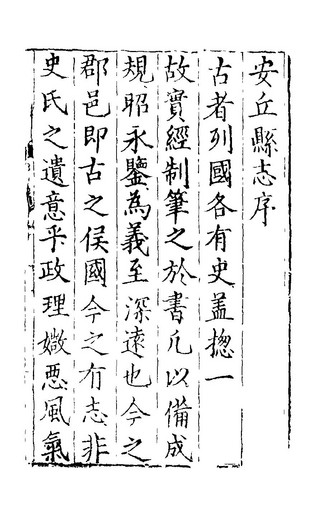 安丘縣志序
古者列國各有史盖揔一
故實經制筆之於書凡以備成
規昭永鑒為義至深遠也今之
郡邑即古之侯國今之有志非
史氏之遺意乎政理媺悪風氣